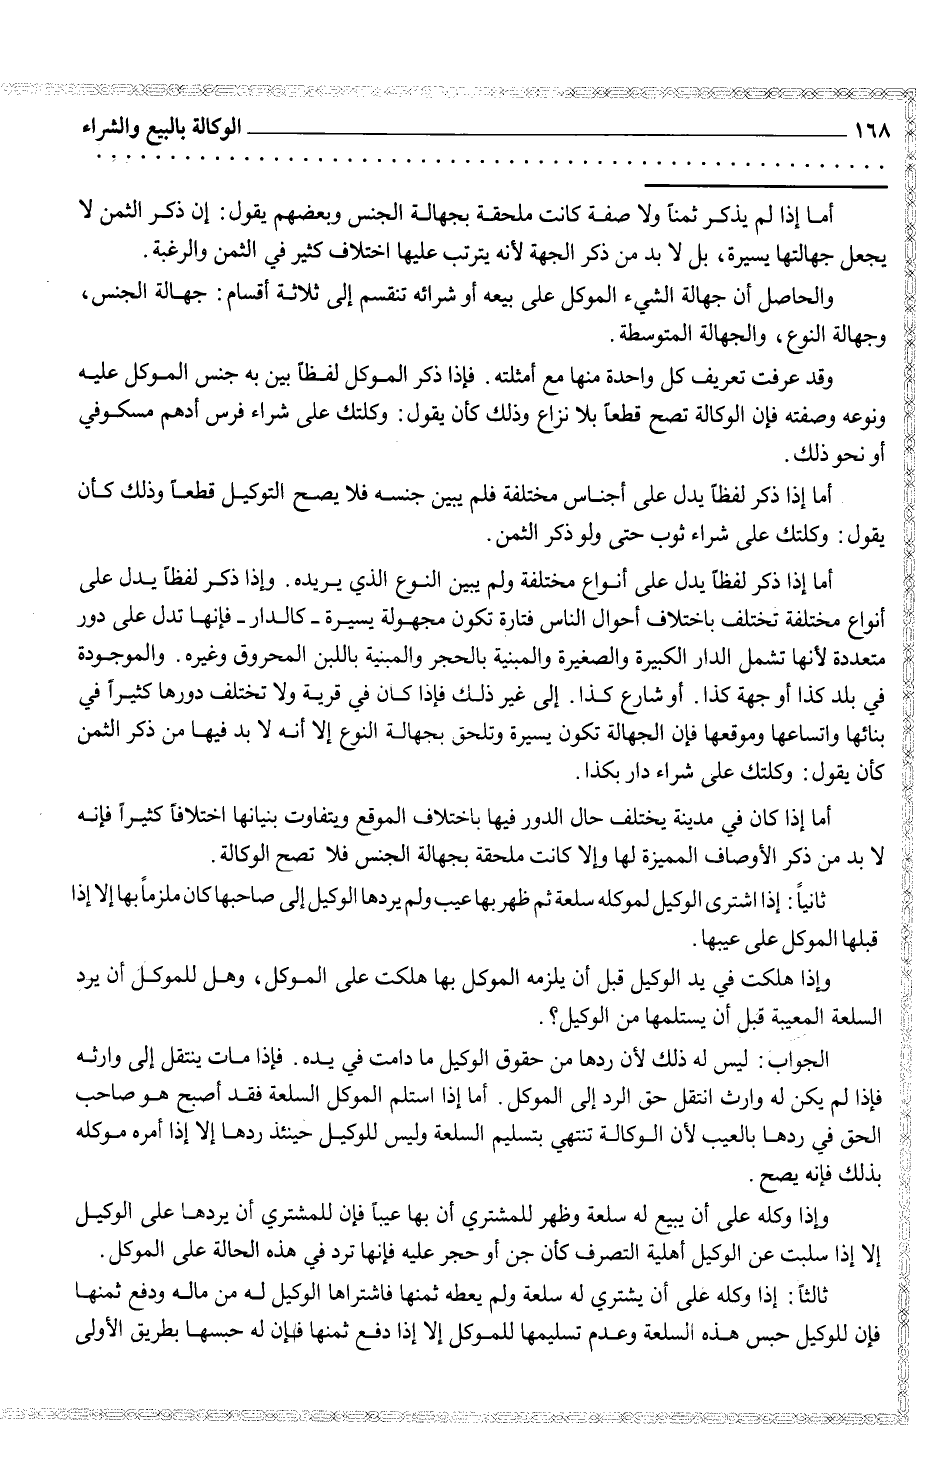 ١٦٨ الوكالة بالبيع والشراء
أما إذا لم يذكر ثمناً ولا صفة كانت ملحقة بجهالة الجنس وبعضهم يقول: إن ذكر الثمن لا
يجعل جهالتها يسيرة، بل لا بد من ذكر الجهة لأنه يترتب عليها اختلاف كثير في الثمن والرغبة.
والحاصل أن جهالة الشيء الموكل على بيعه أو شرائه تنقسم إلى ثلاثة أقسام: جهالة الجنس،
وجهالة النوع، والجهالة المتوسطة.
وقد عرفت تعريف كل واحدة منها مع أمثلته. فإذا ذكر الموكل لفظاً بين به جنس الموكل عليه
ونوعه وصفته فإن الوكالة تصح قطعاً بلا نزاع وذلك كأن يقول: وكلتك على شراء فرس أدهم مسكوفي
أو نحو ذلك.
أما إذا ذكر لفظاً يدل على أجناس مختلفة فلم يبين جنسه فلا يصح التوكيل قطعاً وذلك كأن
يقول: وكلتك على شراء ثوب حتى ولو ذكر الثمن.
أما إذا ذكر لفظاً يدل على أنواع مختلفة ولم يبين النوع الذي يريده. وإذا ذكر لفظاً يدل على
أنواع مختلفة تختلف باختلاف أحوال الناس فتارة تكون مجهولة يسيرة ـ كالدار ـ فإنها تدل على دور
متعددة لأنها تشمل الدار الكبيرة والصغيرة والمبنية بالحجر والمبنية باللبن المحروق وغيره. والموجودة
في بلد كذا أو جهة كذا. أو شارع كذا. إلى غير ذلك فإذا كان في قرية ولا تختلف دورها كثيراً في
بنائها واتساعها وموقعها فإن الجهالة تكون يسيرة وتلحق بجهالة النوع إلا أنه لا بد فيها من ذكر الثمن
كأن يقول: وكلتك على شراء دار بكذا.
أما إذا كان في مدينة يختلف حال الدور فيها باختلاف الموقع ويتفاوت بنيانها اختلافاً كثيراً فإنه
لا بد من ذكر الأوصاف المميزة لها وإلا كانت ملحقة بجهالة الجنس فلا تصح الوكالة.
ثانياً: إذا اشترى الوكيل لموكله سلعة ثم ظهر بها عيب ولم يردها الوكيل إلى صاحبها كان ملزماً بها إلا إذا
قبلها الموكل على عيبها.
وإذا هلكت في يد الوكيل قبل أن يلزمه الموكل بها هلكت على الموكل، وهل للموكل أن يرد
السلعة المعيبة قبل أن يستلمها من الوكيل؟.
الجواب: ليس له ذلك لأن ردها من حقوق الوكيل ما دامت في يده. فإذا مات ينتقل إلى وارثه
فإذا لم يكن له وارث انتقل حق الرد إلى الموكل. أما إذا استلم الموكل السلعة فقد أصبح هو صاحب
الحق في ردها بالعيب لأن الوكالة تنتهي بتسليم السلعة وليس للوكيل حينئذ ردها إلا إذا أمره موكله
بذلك فإنه يصح.
وإذا وكله على أن يبيع له سلعة وظهر للمشتري أن بها عيباً فإن للمشتري أن يردها على الوكيل
إلا إذا سلبت عن الوكيل أهلية التصرف كأن جن أو حجر عليه فإنها ترد في هذه الحالة على الموكل.
ثالثاً: إذا وكله على أن يشتري له سلعة ولم يعطه ثمنها فاشتراها الوكيل له من ماله ودفع ثمنها
فإن للوكيل حبس هذه السلعة وعدم تسليمها للموكل إلا إذا دفع ثمنها فإن له حبسها بطريق الأولى